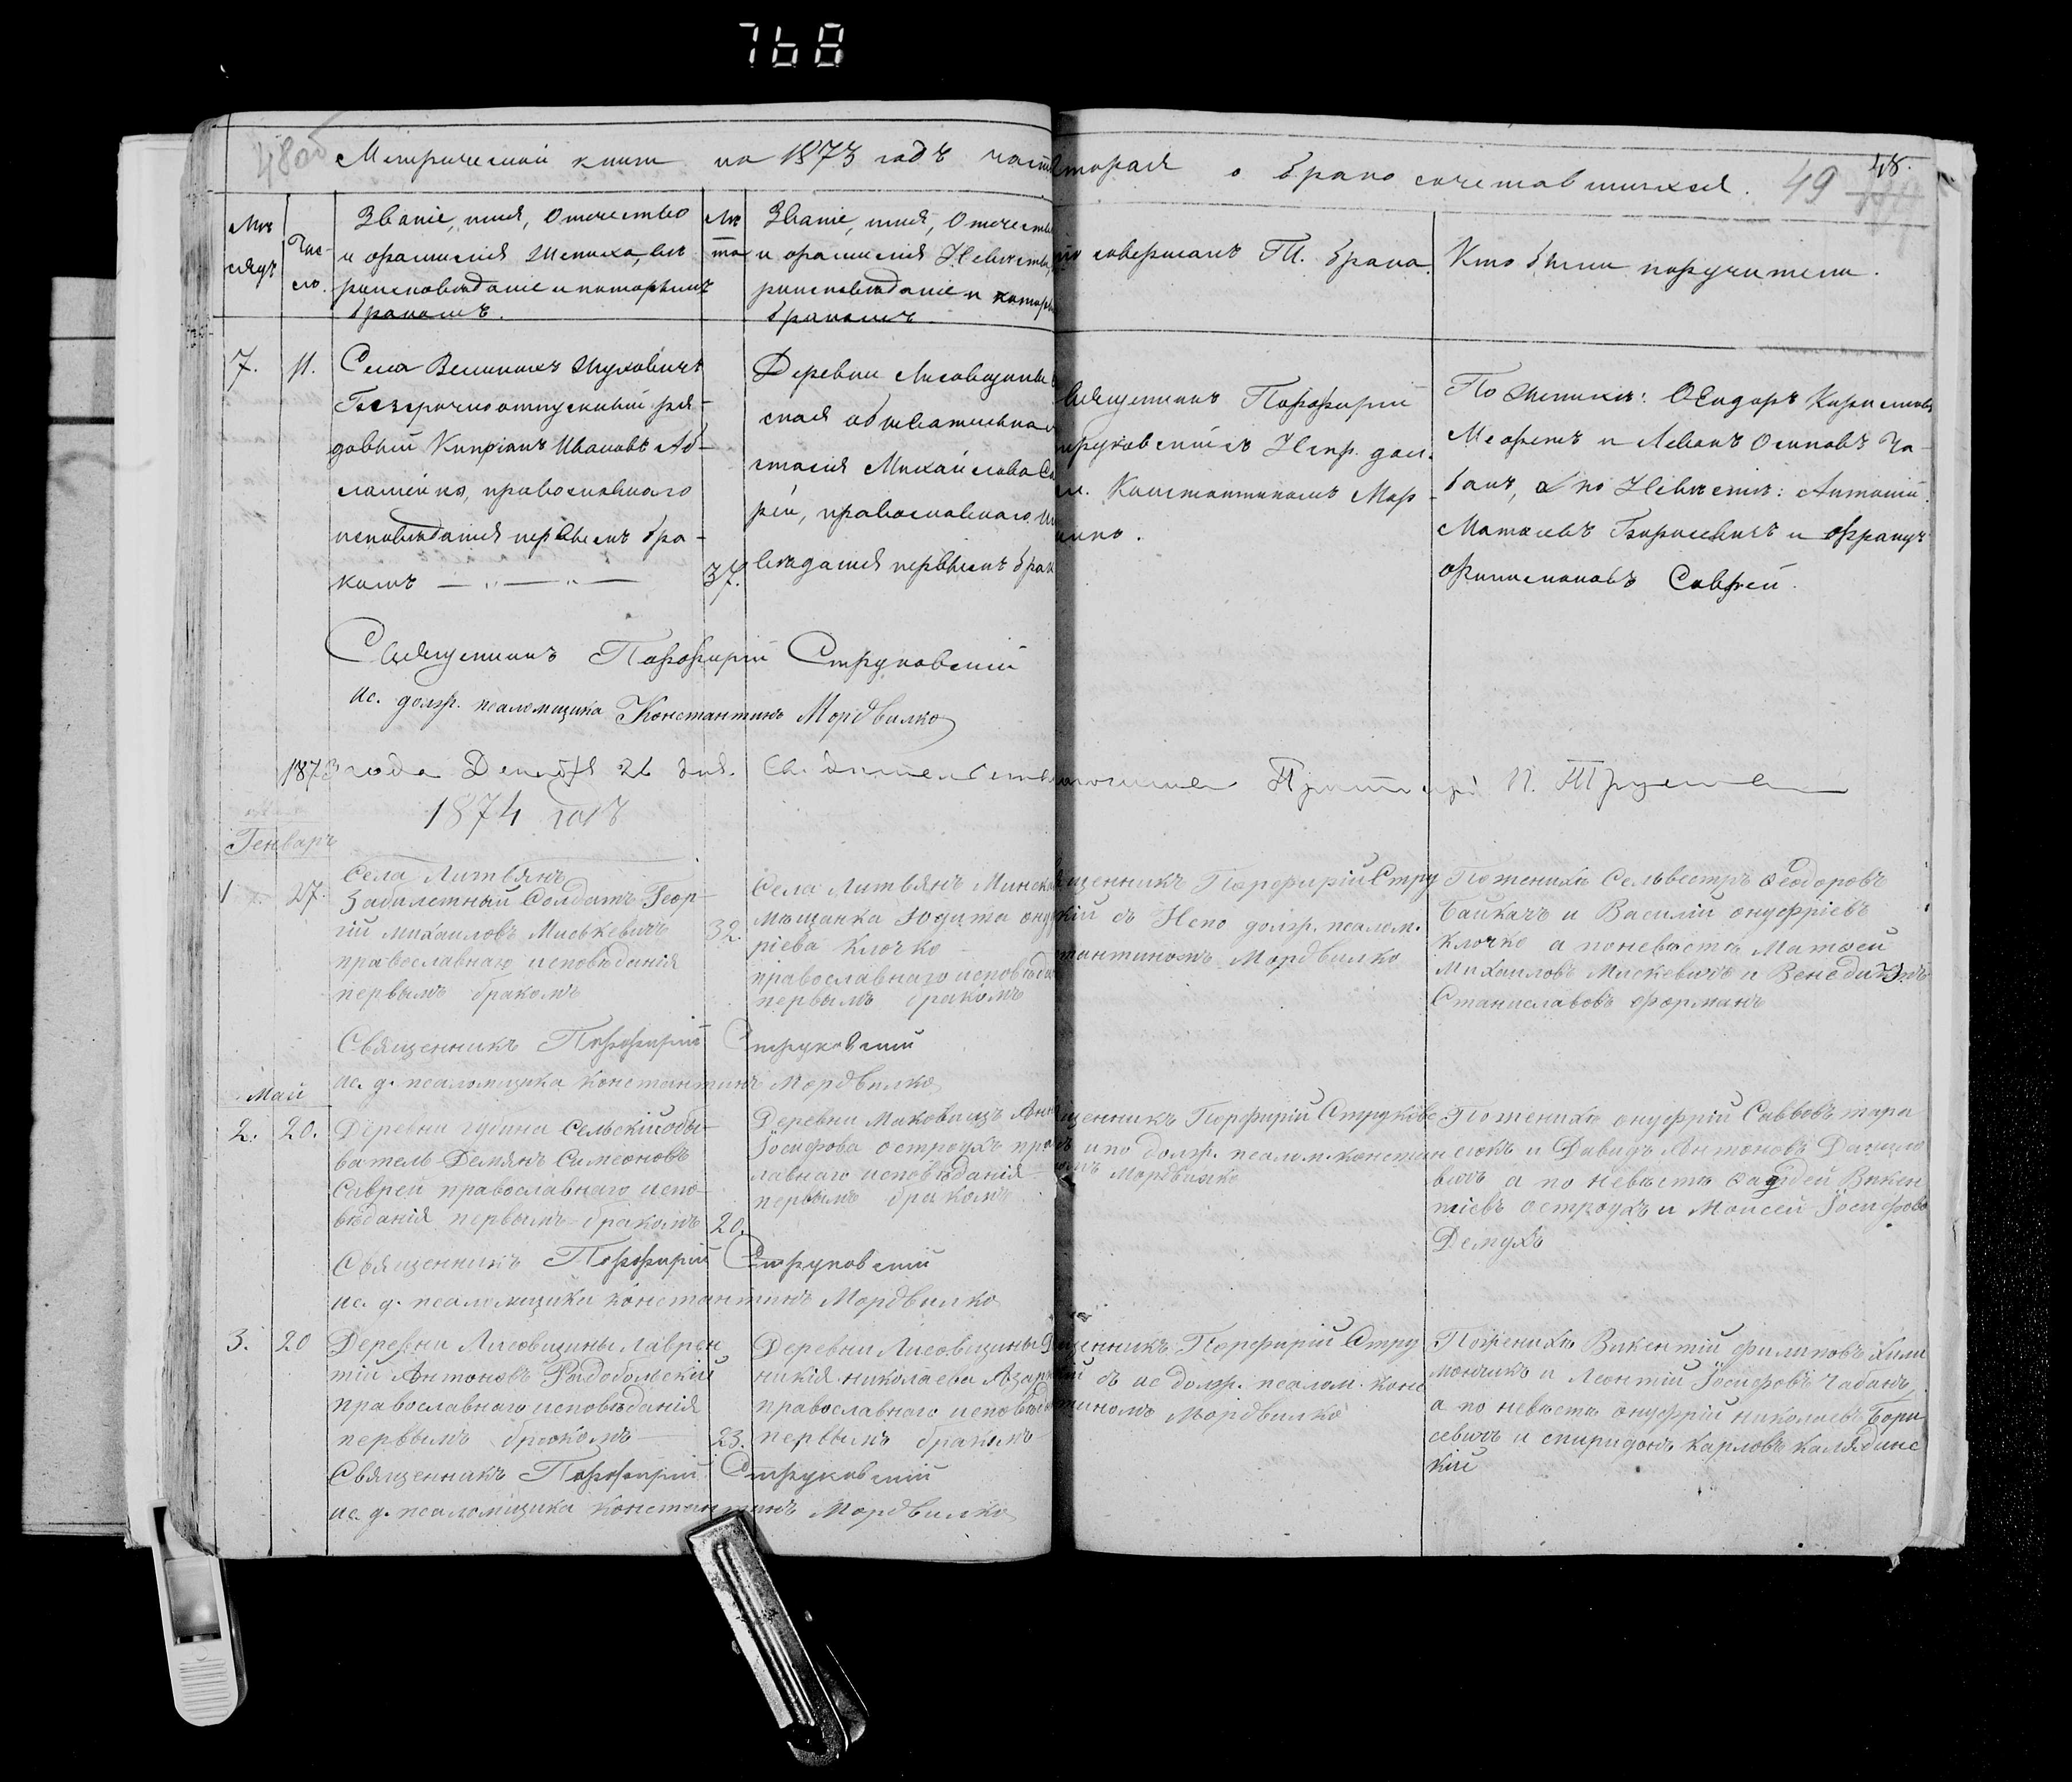 768
48об
Метрической книги на 1873 годъ часть вторая о бракосочетавшихся.
49
48.
Мѣсяцъ
Число.
Званіе, имя, Отчество
и фамилія Жениха, вѣ
роисповѣданіе и которымъ
бракомъ.
Лѣта
Званіе, имя, Отчество
и фамилія Невѣсты,
роисповѣданіе и которы
бракомъ
совершалъ Т. брака.
Кто были поручители.
7.
11.
Села Великихъ Жуховичъ
Безсрочноотпускный ря-
довый Кипріанъ Ивановъ Аб-
ламейко, православнаго
исповѣданія первымъ бра-
комъ
37.
Деревни Лисовщины
ская обывательница
стасія Михайлова Са
рей, православнаго
вѣданія первымъ брак
Священникъ Порфирій
Струковскій съ Испр. дол.
Константиномъ Мор-
вилко.
По Женихѣ: Ѳеодоръ Кириловъ
и Леонъ Осиповъ Ча-
банъ, а по Невѣстѣ: Антоній
Матвѣевъ Борисевичъ и Францъ
Филимоновъ Саврей.
Священникъ Порфирій Струковскій
ис. долж. псаломщика Константинъ Мордвилко
1873 года Декабря 26 дня.
1874 годъ
Генварь
1
27.
Села Литвянъ
Забилетный Солдатъ Геор-
гій Михаиловъ Миськевичъ
православнаго исповѣданія
первымъ бракомъ
32.
Села Литвянъ Минска
Мѣщанка Юдита Онуф
ріева Клочко
православнаго исповѣда
первымъ бракомъ
щенникъ Порфирій Стру
кій съ Испо долж. псалом.
тантиномъ Мордвилко
По женихѣ Сельвестръ Ѳеодоровъ
Байкачъ и Василій Онуфріевъ
Клочко а по невѣстѣ Матвей
Михаиловъ Мискевичъ и Венедиктъ
Станиславовъ Форманъ
Священникъ Порфирій Струковскій
ис. д. псаломщика Константинъ Мордвилко
Май
2.
20.
Деревни Губина Сельскій обы-
ватель Демянъ Симеоновъ
Саврей православнаго испо-
вѣданія первымъ бракомъ
20.
Деревни Маковищъ Анна
Іосифова Остроухъ пра
лавнаго исповѣданія
первымъ бракомъ
щенникъ Порфирій Струковс
испо долж. псалом. констан
Мордвилко
По женихѣ Онуфрій Саввовъ Тара
сюкъ и Давидъ Антоновъ Данило
вичъ а по невѣстѣ Ѳаддей Викен
тіевъ Остроухъ и Моисей Іосифовъ
Демухъ
Священникъ Порфирій Струковскій
ис. д. псаломщика Константинъ Мордвилко
3.
20
Деревни Лисовщины Лаврен
тій Антоновъ Радобольскій
православнаго исповѣданія
первымъ бракомъ
23.
Деревни Лисовщины
никія Николаева Азар
православнаго исповѣда
первымъ бракомъ
щенникъ Порфирій Стру
кій съ ис долж. псалом. конс
тиномъ Мордвилко
По женихѣ Викентій Филиповъ Хили
мончикъ и Леонтій Іосифовъ Чабанъ,
а по невѣстѣ Онуфрій Николаевъ Бори
севичъ и Спиридонъ Карловъ Калядинс
кій
Священникъ Порфирій Струковскій
ис. д. псаломщика Константинъ Мордвилко